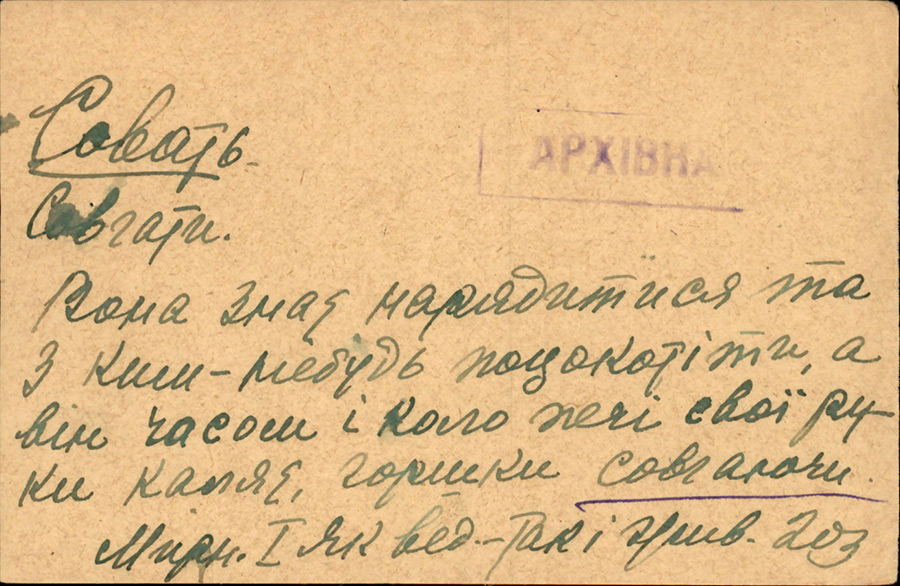 Совать.
АРХІВНА
Совгати.
Вона знає нарядитися та
з ким-небудь поцокотіти, а
він часом і коло печі свої ру-
ки каляє, горшки совгаючи.
Мирн. І як вед.-Такі і жив. 203